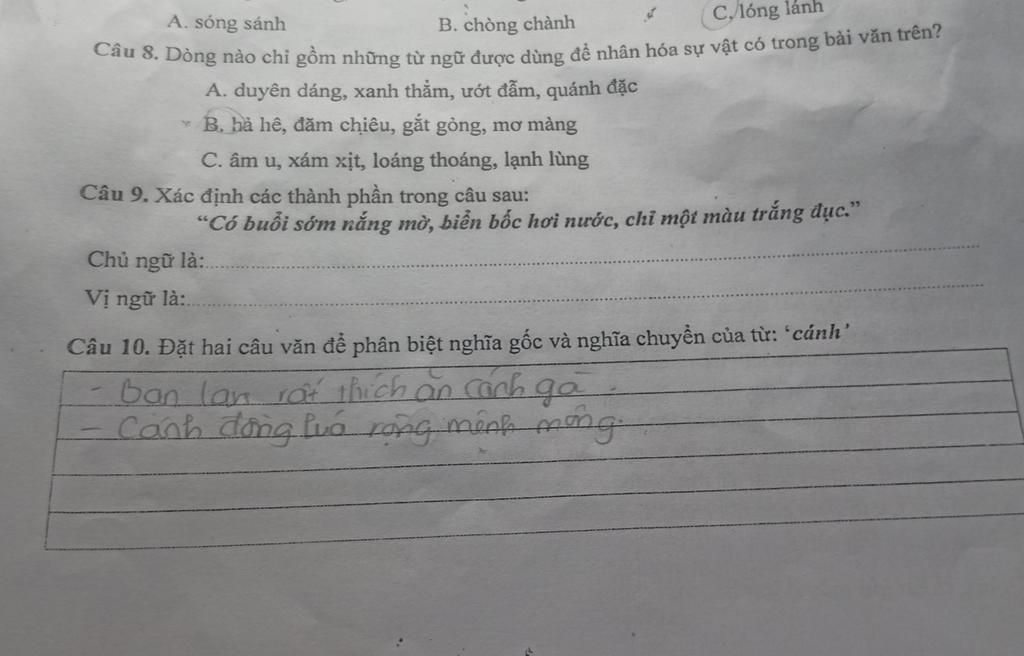 A. sóng sánh B. chòng chành C. lóng lánh
Câu 8. Dòng nào chỉ gồm những từ ngữ được dùng để nhân hóa sự vật có trong bài văn trên?
A. duyên dáng, xanh thẳm, ướt đẫm, quánh đặc
B. hả hê, đăm chiêu, gắt gỏng, mơ màng
C. âm u, xám xịt, loáng thoáng, lạnh lùng
Câu 9. Xác định các thành phần trong câu sau:
“Có buổi sớm nắng mờ, biển bốc hơi nước, chỉ một màu trắng đục.”
Chủ ngữ là:
Vị ngữ là:
Câu 10. Đặt hai câu văn để phân biệt nghĩa gốc và nghĩa chuyển của từ: ‘cánh’
- Bạn lan rất thích ăn cánh gà.
- Cánh đồng lúa rộng mênh mông.